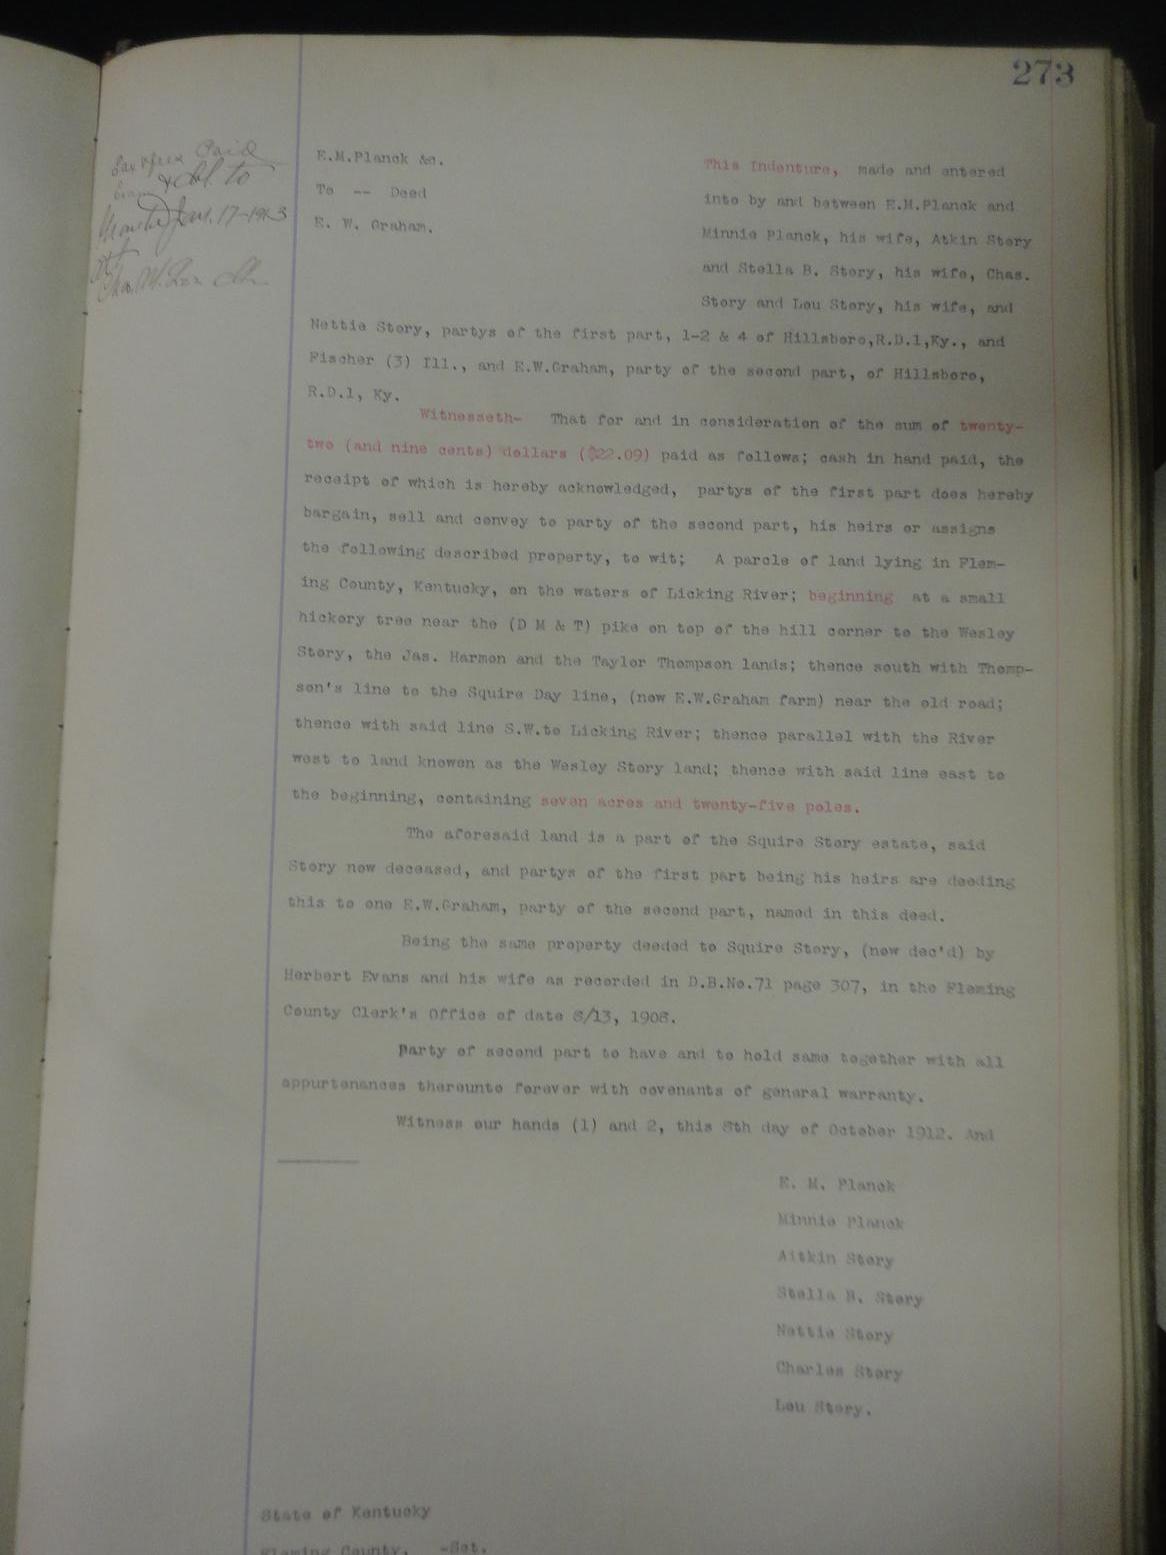 273
Paid
& del. to
Jan. 17-1913
Chas. W.
E.M.Planck &c.
To -- Deed
E. W. Graham.
This Indenture, made and entered
into by and between E.M.Planck and
Minnie Planck, his wife, Atkin Story
and Stella B. Story, his wife, Chas.
Story and Lou Story, his wife, and
Nettie Story, partys of the first part, 1-2 & 4 of Hillsboro,R.D.1,Ky., and
Fischer (3) Ill., and E.W.Graham, party of the second part, of Hillsboro,
R.D.1, Ky.
Witnesseth- That for and in consideration of the sum of twenty-
two (and nine cents) dollars ($22.09) paid as follows; cash in hand paid, the
receipt of which is hereby acknowledged, partys of the first part does hereby
bargain, sell and convey to party of the second part, his heirs or assigns
the following described property, to wit; A parcle of land lying in Flem-
ing County, Kentucky, on the waters of Licking River; beginning at a small
hickory tree near the (D M & T) pike on top of the hill corner to the Wesley
Story, the Jas. Harmon and the Taylor Thompson lands; thence south with Thomp-
son's line to the Squire Day line, (now E.W.Graham farm) near the old road;
thence with said line S.W.to Licking River; thence parallel with the River
west to land knowen as the Wesley Story land; thence with said line east to
the beginning, containing seven acres and twenty-five poles.
The aforesaid land is a part of the Squire Story estate, said
Story now deceased, and partys of the first part being his heirs are deeding
this to one E.W.Graham, party of the second part, named in this deed.
Being the same property deeded to Squire Story, (now dec'd) by
Herbert Evans and his wife as recorded in D.B.No.71 page 307, in the Fleming
County Clerk's Office of date 8/13, 1908.
Party of second part to have and to hold same together with all
appurtenances thereunto forever with covenants of general warranty.
Witness our hands (1) and 2, this 8th day of October 1912. And
E. M. Planck
Minnie Planck
Aitkin Story
Stella B. Story
Nettie Story
Charles Story
Lou Story.
State of Kentucky
Fleming County. -Sct.